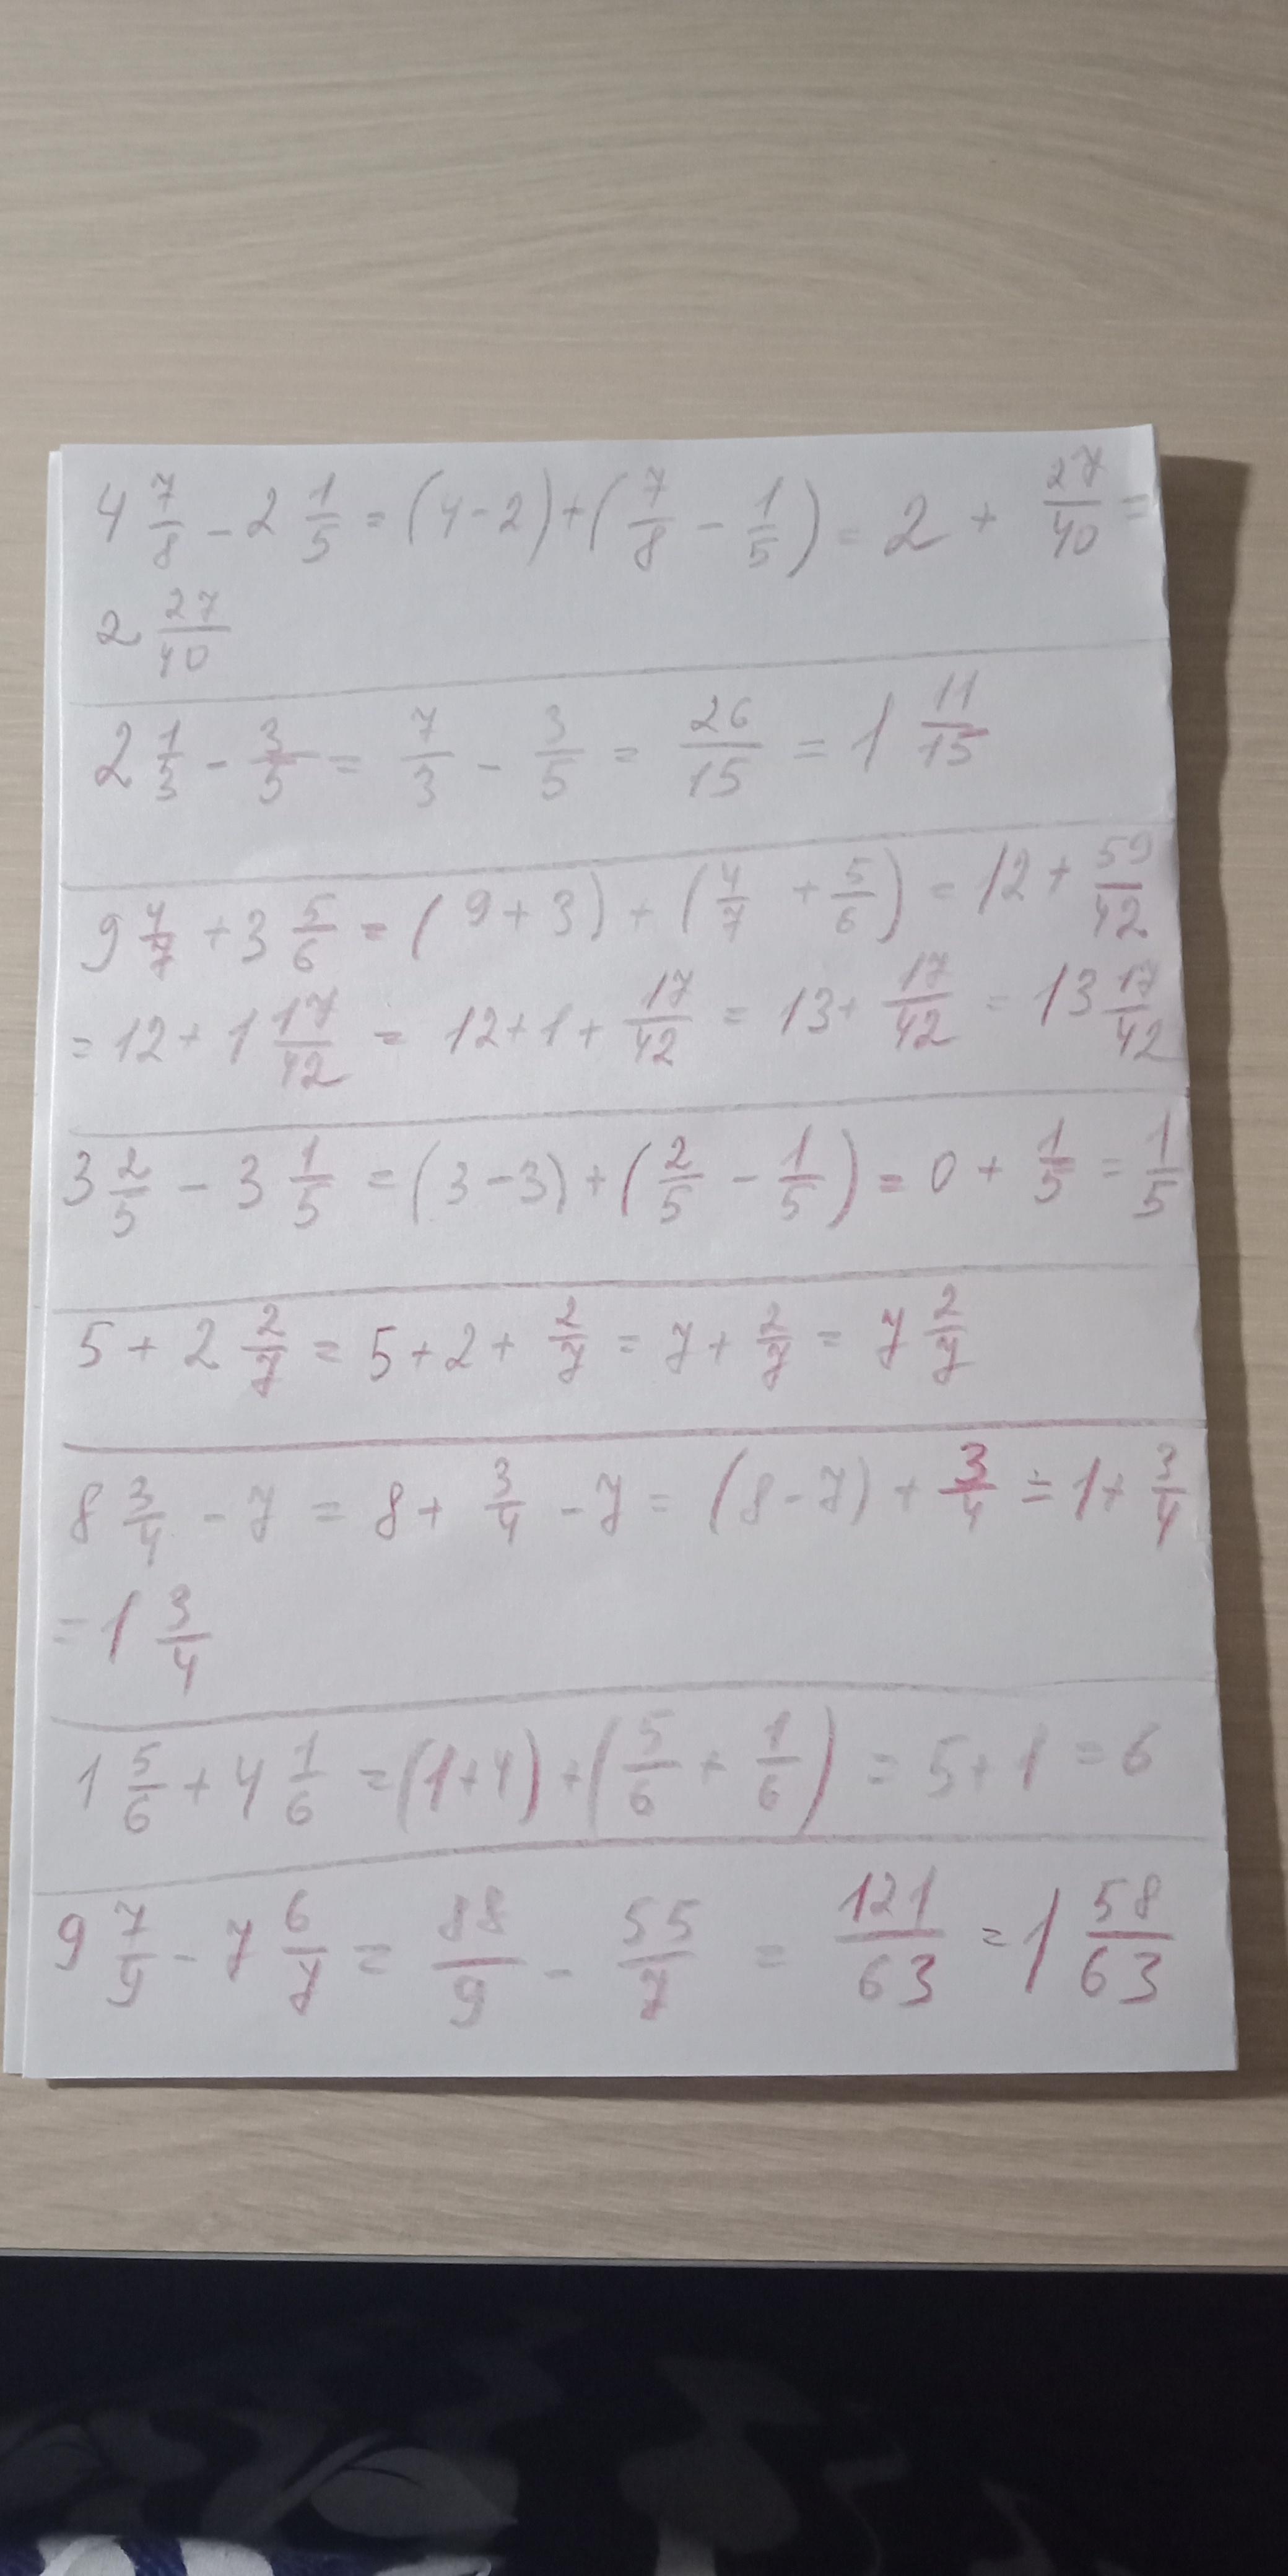 4 7/8 - 2 1/5 = (4-2)+(7/8 - 1/5) = 2 + 27/40 =
2 27/40
2 1/3 - 3/5 = 7/3 - 3/5 = 26/15 = 1 11/15
9 4/7 + 3 5/6 = (9+3) + (4/7 + 5/6) = 12 + 59/42
= 12 + 1 17/42 = 12+1+ 17/42 = 13+ 17/42 = 13 17/42
3 2/5 - 3 1/5 = (3-3)+(2/5 - 1/5) = 0 + 1/5 = 1/5
5 + 2 2/7 = 5+2+ 2/7 = 7+ 2/7 = 7 2/7
8 3/4 - 7 = 8+ 3/4 - 7 = (8-7) + 3/4 = 1+ 3/4
= 1 3/4
1 5/6 + 4 1/6 = (1+4)+(5/6 + 1/6) = 5+1 = 6
9 7/9 - 7 6/7 = 88/9 - 55/7 = 121/63 = 1 58/63